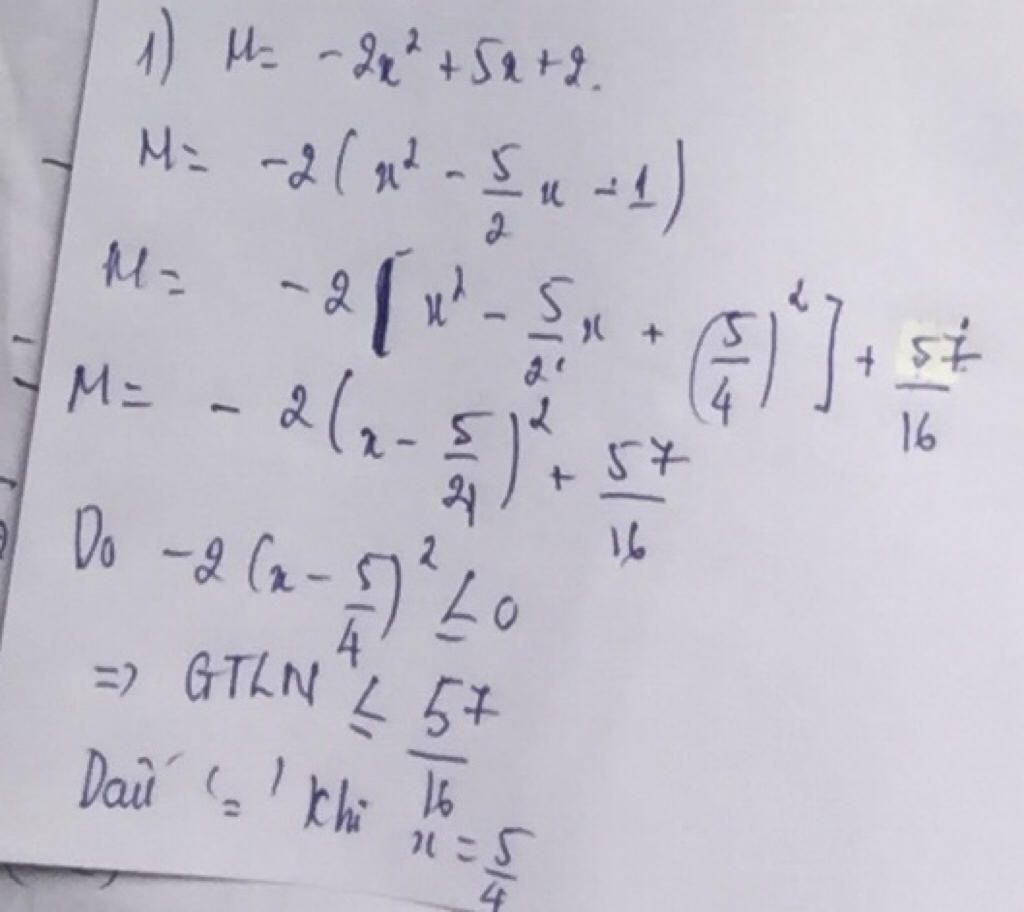 1) M = -2x² + 5x + 2.
M = -2(x² - 5/2 x - 1)
M = -2[x² - 5/2 x + (5/4)²] + 57/16
M = -2(x - 5/4)² + 57/16
Do -2(x - 5/4)² ≤ 0
=> GTLN ≤ 57/16
Dấu '=' khi x = 5/4